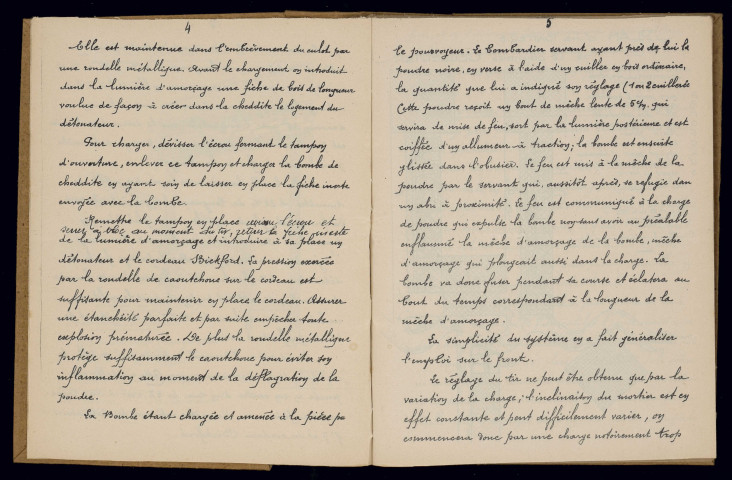 4
Elle est maintenue dans l'embrèvement du culot par
une rondelle métallique. Avant le chargement on introduit
dans la lumière d'amorçage une fiche de bois de longueur
voulue de façon à créer dans la cheddite le logement du
détonateur.
Pour charger, dévisser l'écrou fermant le tampon
d'ouverture, enlever ce tampon et charger la bombe de
cheddite en ayant soin de laisser en place la fiche inerte
envoyée avec la bombe.
Remettre le tampon en place l'écrou et
serrer à bloc au moment du tir, retirer la fiche inerte
de la lumière d'amorçage et introduire à sa place un
détonateur et le cordeau Bickford. La pression exercée
par la rondelle de caoutchouc sur le cordeau est
suffisante pour maintenir en place le cordeau. Assurer
une étanchéité parfaite et par suite empêcher toute
explosion prématurée. De plus la rondelle métallique
protège suffisamment le caoutchouc pour éviter son
inflammation au moment de la déflagration de la
poudre.
La Bombe étant chargée et amenée à la pièce pa
5
le pourvoyeur. Le Bombardier servant ayant près de lui la
poudre noire, en verse à l'aide d'un cuiller en bois ordinaire,
la quantité que lui a indigné son réglage (1 ou 2 cuillerées
Cette poudre reçoit un bout de mèche lente de 5 c/m. qui
servira de mise de feu, sort par la lumière postérieure et est
coiffée d'un allumeur à traction; la bombe est ensuite
glissée dans l'obusier. Le feu est mis à la mèche de la
poudre par le servant qui, aussitôt après, se refugie dan
un abri à proximité. Le feu est communiqué à la charge
de poudre qui expulse la bombe non sans avoir au préalable
enflammé la mèche d'amorçage de la bombe, mèche
d'amorçage qui plongeait aussi dans la charge. La
bombe va donc fuser pendant sa course et éclatera au
bout du temps correspondant à la longueur de la
mèche d'amorçage.
La simplicité du système en a fait généraliser
l'emploi sur le front.
Le réglage du tir ne peut être obtenu que par la
variation de la charge; l'inclinaison du mortier est en
effet constante et peut difficilement varier, on
commencera donc par une charge notoirement trop